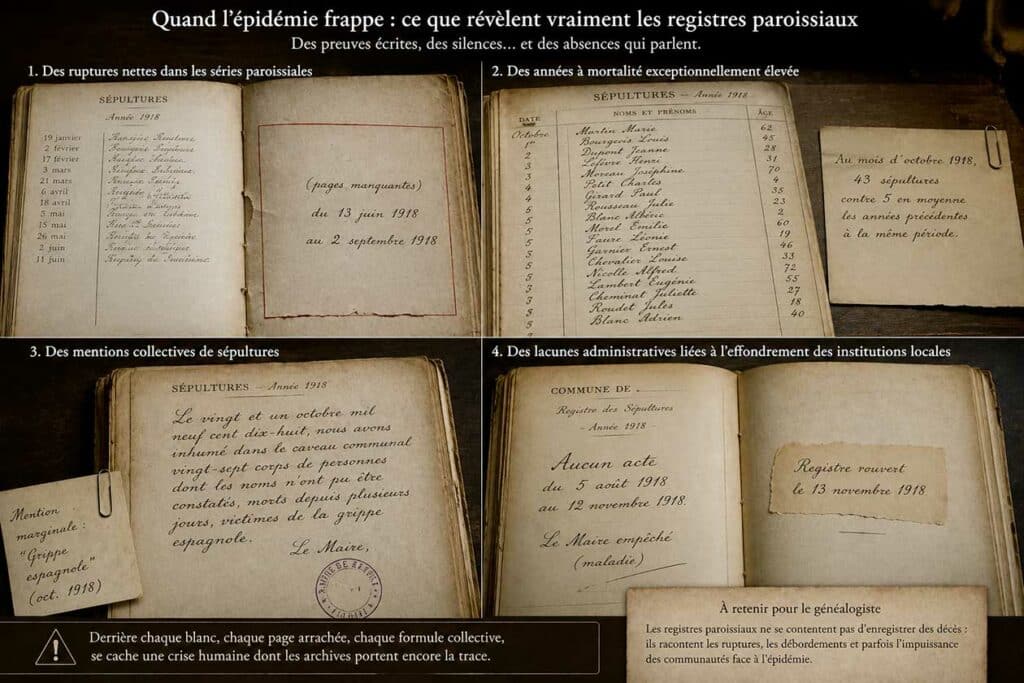 Quand l'épidémie frappe : ce que révèlent vraiment les registres paroissiaux
Des preuves écrites, des silences... et des absences qui parlent.
1. Des ruptures nettes dans les séries paroissiales
SÉPULTURES
Année 1918
19 janvier
2 février
17 février
3 mars
21 mars
6 avril
18 avril
5 mai
15 mai
26 mai
2 juin
11 juin
(pages manquantes)
du 13 juin 1918
au 2 septembre 1918
2. Des années à mortalité exceptionnellement élevée
SÉPULTURES — Année 1918
DATE NOMS ET PRÉNOMS ÂGE
Octobre Martin Marie 62
1er Bourgeois Louis 45
2 Dupont Jeanne 28
2 Lefèvre Henri 31
3 Moreau Joséphine 70
4 Petit Charles 4
4 Girard Paul 35
Rousseau Julie 23
Blanc Albéric 2
Morel Emilie 60
Faure Léonie 19
Garnier Ernest 46
Chevalier Louise 33
Nicolle Alfred 72
Lambert Eugénie 55
Cheminat Juliette 27
Roudet Jules 18
Blanc Adrien 40
Au mois d'octobre 1918,
43 sépultures
contre 5 en moyenne
les années précédentes
à la même période.
3. Des mentions collectives de sépultures
SÉPULTURES — Année 1918
Le vingt et un octobre mil
neuf cent dix-huit, nous avons
inhumé dans le caveau communal
vingt-sept corps de personnes
dont les noms n'ont pu être
constatés, morts depuis plusieurs
jours, victimes de la grippe
espagnole.
Le Maire,
Mention
marginale :
"Grippe
espagnole"
(oct. 1918)
4. Des lacunes administratives liées à l'effondrement des institutions locales
COMMUNE DE
Registre des Sépultures
- Année 1918 -
Aucun acte
du 5 août 1918
au 12 novembre 1918.
Le Maire empêché
(maladie)
Registre rouvert
le 13 novembre 1918
Derrière chaque blanc, chaque page arrachée, chaque formule collective,
se cache une crise humaine dont les archives portent encore la trace.
À retenir pour le généalogiste
Les registres paroissiaux ne se contentent pas d'enregistrer des décès :
ils racontent les ruptures, les débordements et parfois l'impuissance
des communautés face à l'épidémie.